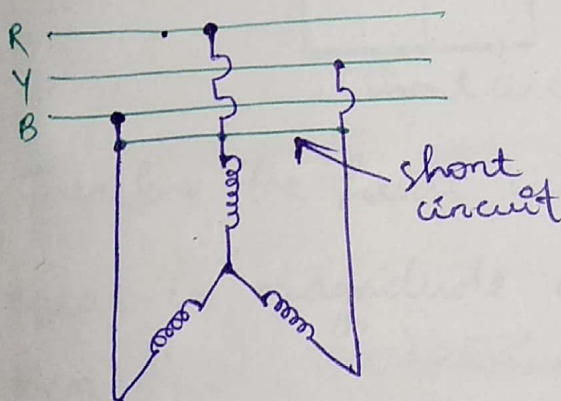 R
Y
B
short
circuit